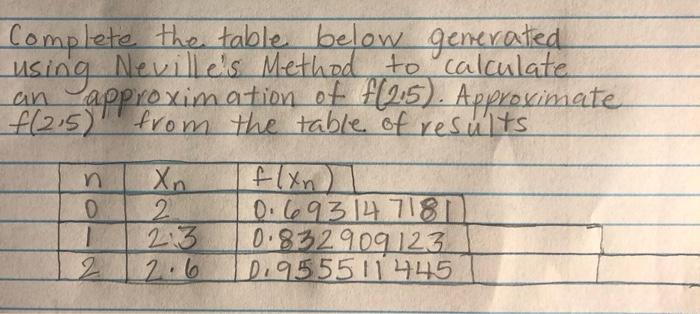 Complete the table below generated
using Neville's Method to calculate
an approximation of f(2.5). Approximate
f(2.5) from the table of results
n Xn f(xn)
0 2 0.693147181
1 2.3 0.832909123
2 2.6 0.955511445